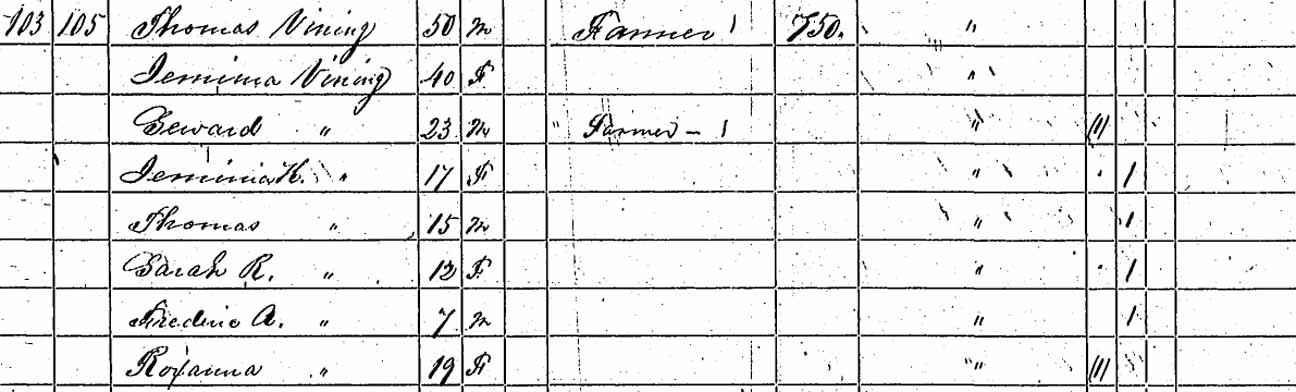 103 105 Thomas Vining 50 M Farmer 1 750. "
Jemima Vining 40 F "
Seward " 23 M " Farmer - 1 " (1)
Jemima K. " 17 F " 1
Thomas " 15 M " 1
Sarah R. " 12 F " 1
Frederic A. " 7 M " 1
Roxanna " 19 F " (1)